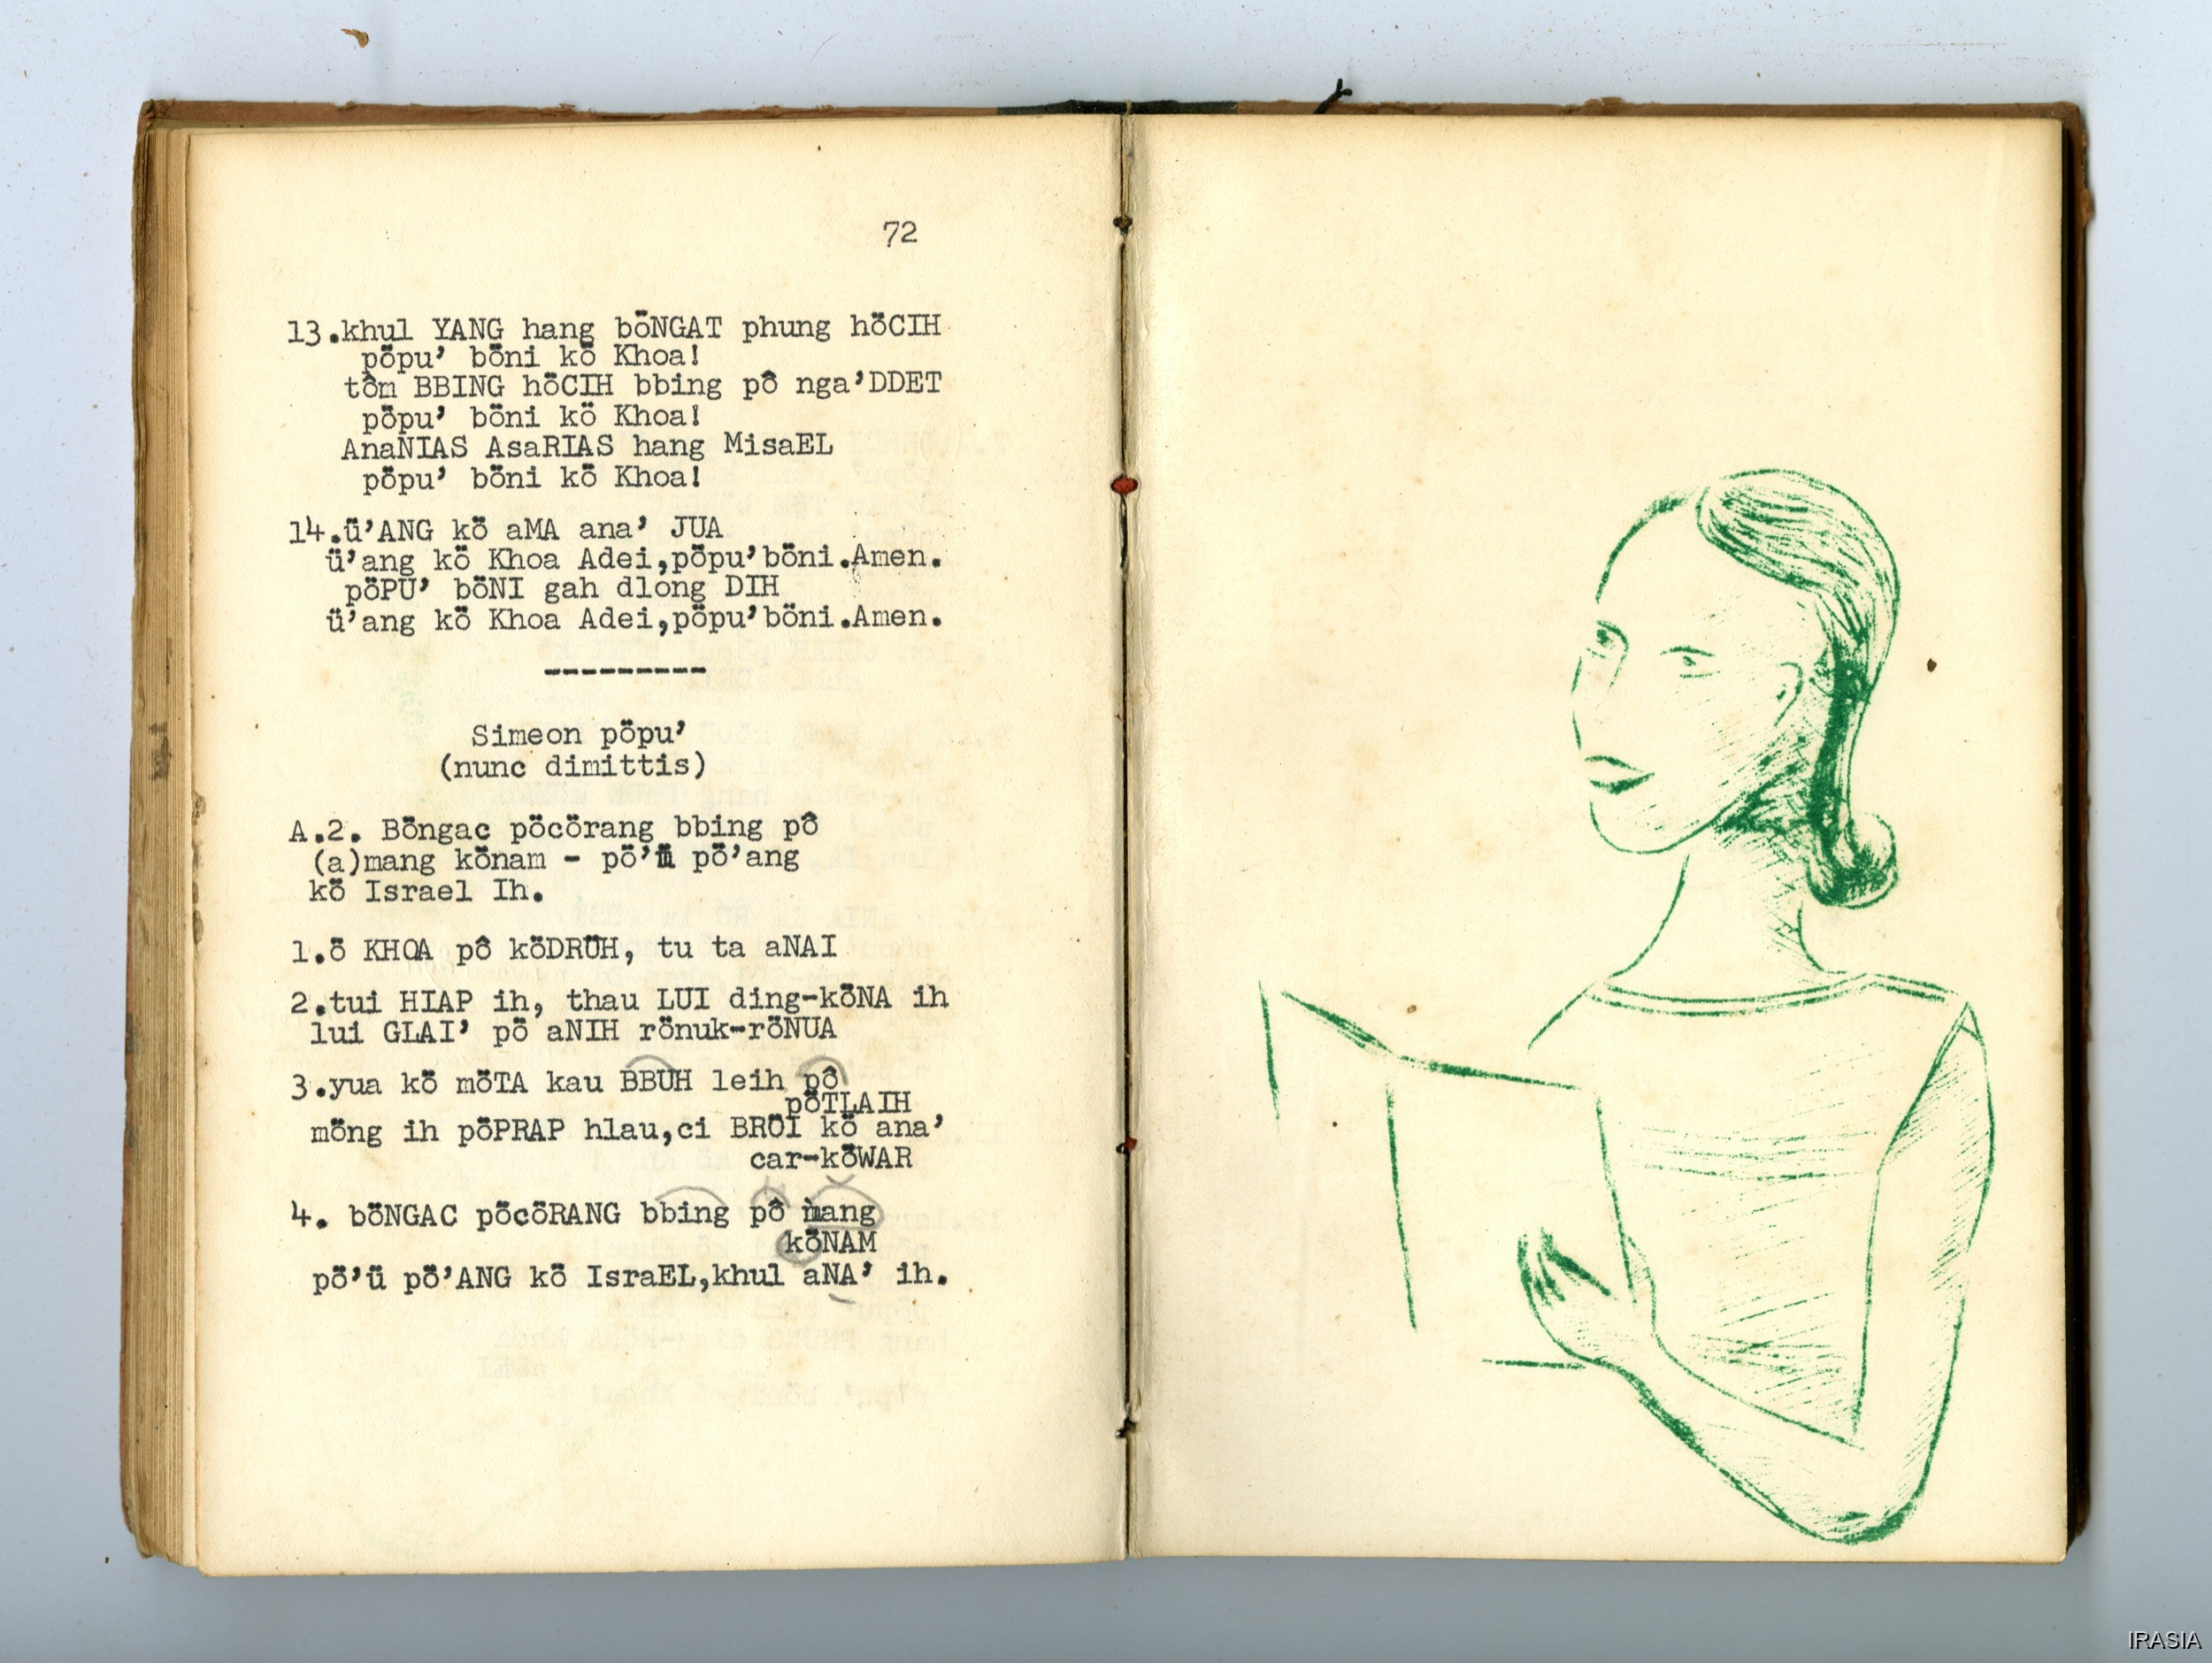 72
13.khul YANG hang böNGAT phung höCIH
pöpu' böni kö Khoa!
tôm BBING höCIH bbing pô nga'DDET
pöpu' böni kö Khoa!
AnaNIAS AsaRIAS hang MisaEL
pöpu' böni kö Khoa!
14.ü'ANG kö aMA ana' JUA
ü'ang kö Khoa Adei,pöpu'böni.Amen.
pöPU' böNI gah dlong DIH
ü'ang kö Khoa Adei,pöpu'böni.Amen.
---------
Simeon pöpu'
(nunc dimittis)
A.2. Böngac pöcörang bbing pô
(a)mang könam - pö'ü pö'ang
kö Israel Ih.
1.ö KHOA pô köDRÜH, tu ta aNAI
2.tui HIAP ih, thau LUI ding-köNA ih
lui GLAI' pö aNIH rönuk-röNUA
3.yua kö möTA kau BBUH leih pô
pöTLAIH
möng ih pöPRAP hlau,ci BRÖI kö ana'
car-köWAR
4. böNGAC pöcöRANG bbing pô mang
köNAM
pö'ü pö'ANG kö IsraEL,khul aNA' ih.
IRASIA